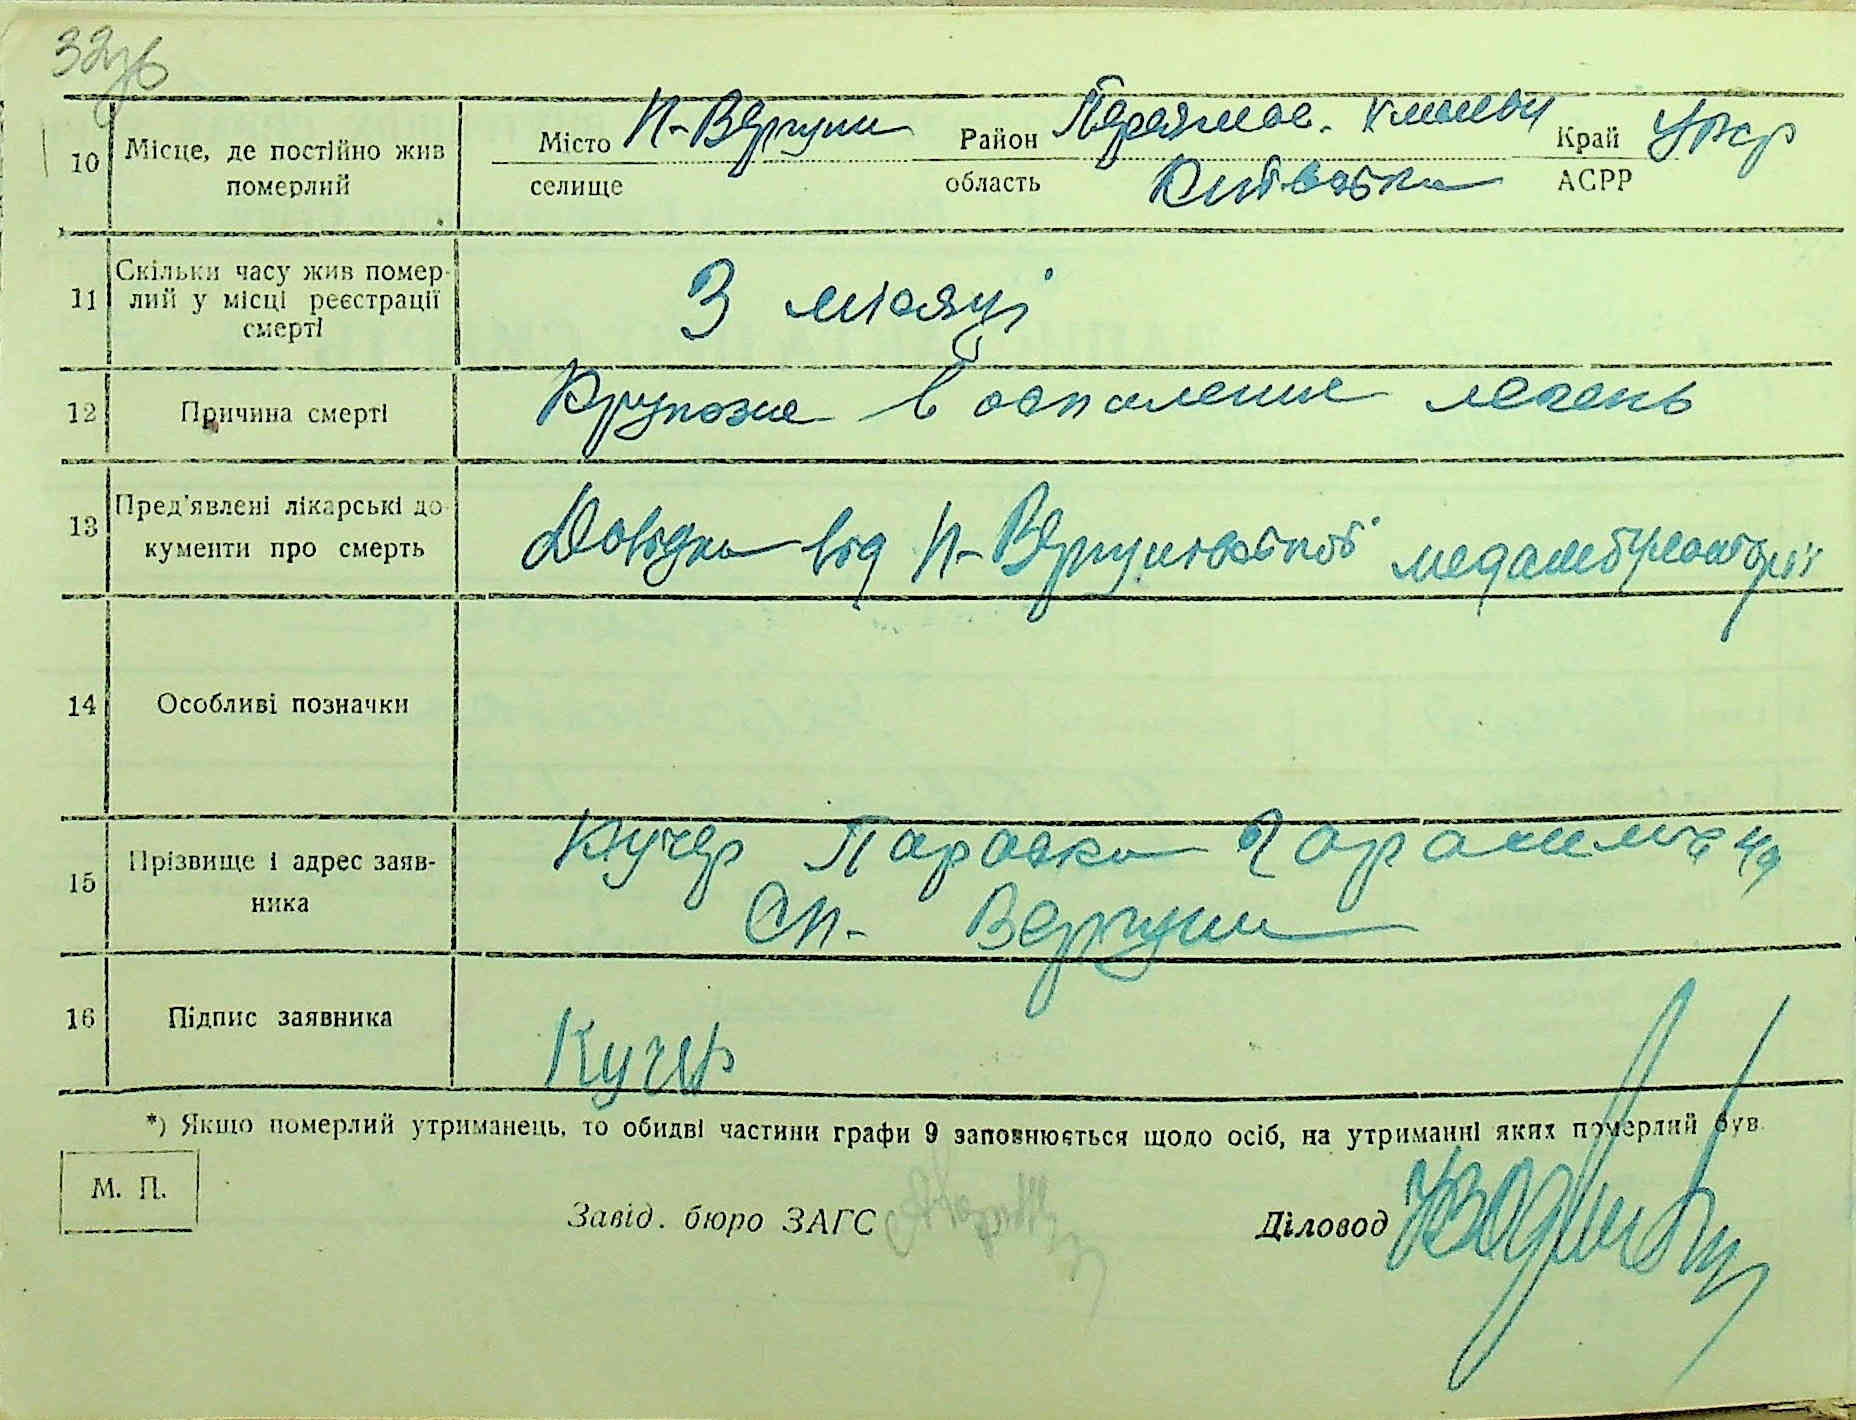 32
10 Місце, де постійно жив померлий
Місто П-Вергуни Район Переяслав. Хмельн Край Укр
селище область Київська АСРР
11 Скільки часу жив помер-
лий у місці реєстрації
смерті
3 місяці
12 Причина смерті Крупозне воспаление легень
13 Пред'явлені лікарські до-
кументи про смерть
Довідка від П-Вергунівської медамбулаторії
14 Особливі позначки
15 Прізвище і адрес заяв-
ника
Кучер Параска
Сп- Вергуни
16 Підпис заявника Кучер
*) Якщо померлий утриманець, то обидві частини графи 9 заповнюється щодо осіб, на утриманні яких померлий був
М. П.
Завід. бюро ЗАГС Діловод